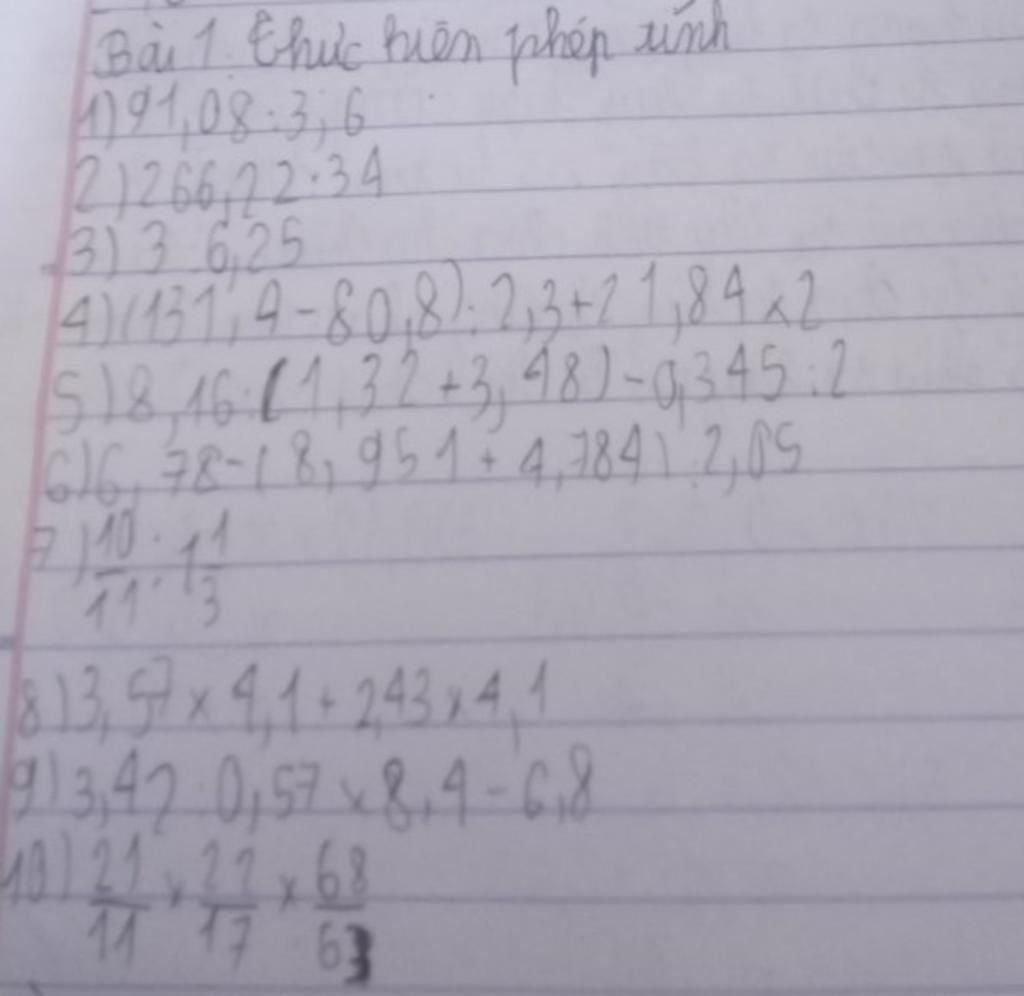 Bài 1. thực hiện phép tính
1) 91,08 : 3,6
2) 266,22 : 34
3) 3 6,25
4) (131,4 - 80,8) : 2,3 + 21,84 x 2
5) 8,16 : (1,32 + 3,48) - 0,345 : 2
6) 6,78 - (8,951 + 4,784) : 2,05
7) 10/11 : 1 1/3
8) 3,57 x 4,1 + 2,43 x 4,1
9) 3,42 : 0,57 x 8,4 - 6,8
10) 21/11 x 22/17 x 68/63